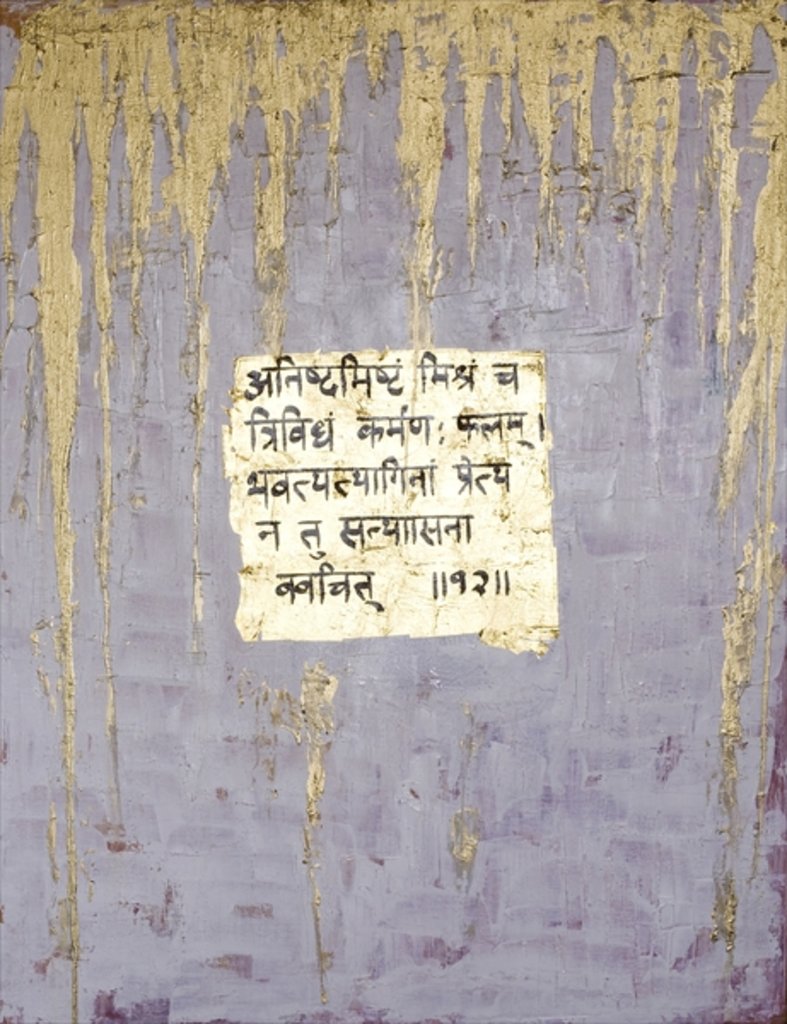 अनिष्टमिष्टं मिश्रं च
त्रिविधं कर्मण: फलम्।
भवत्यत्यागिनां प्रेत्य
न तु सत्याासिना
क्वचित् ॥१२॥